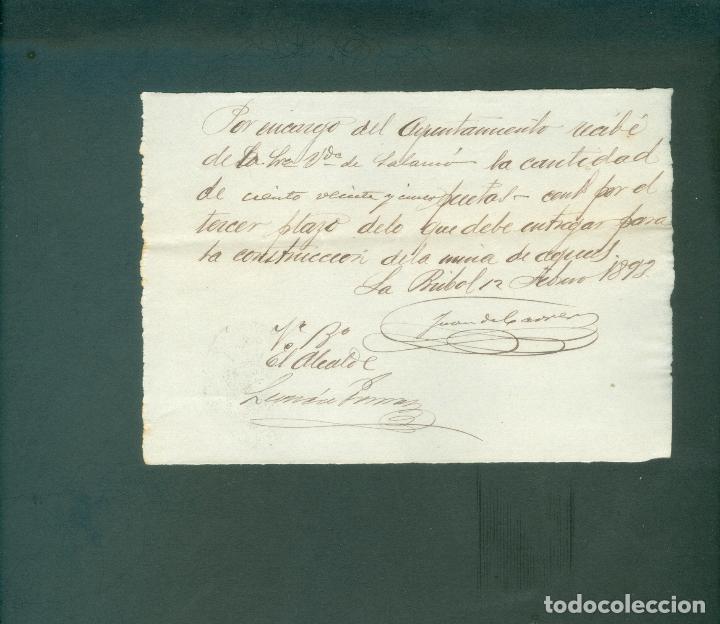 Por encargo del Ayuntamiento recibé
de la Sra Vda de la cantidad
de ciento veinte y cinco pesetas por el
tercer plazo delo que debe entregar para
la construccion dela mina de aguas.
La Bisbal 12 Febrero 1893
Juan de
Vº Bº
El Alcalde
todocoleccion
todocoleccion.net